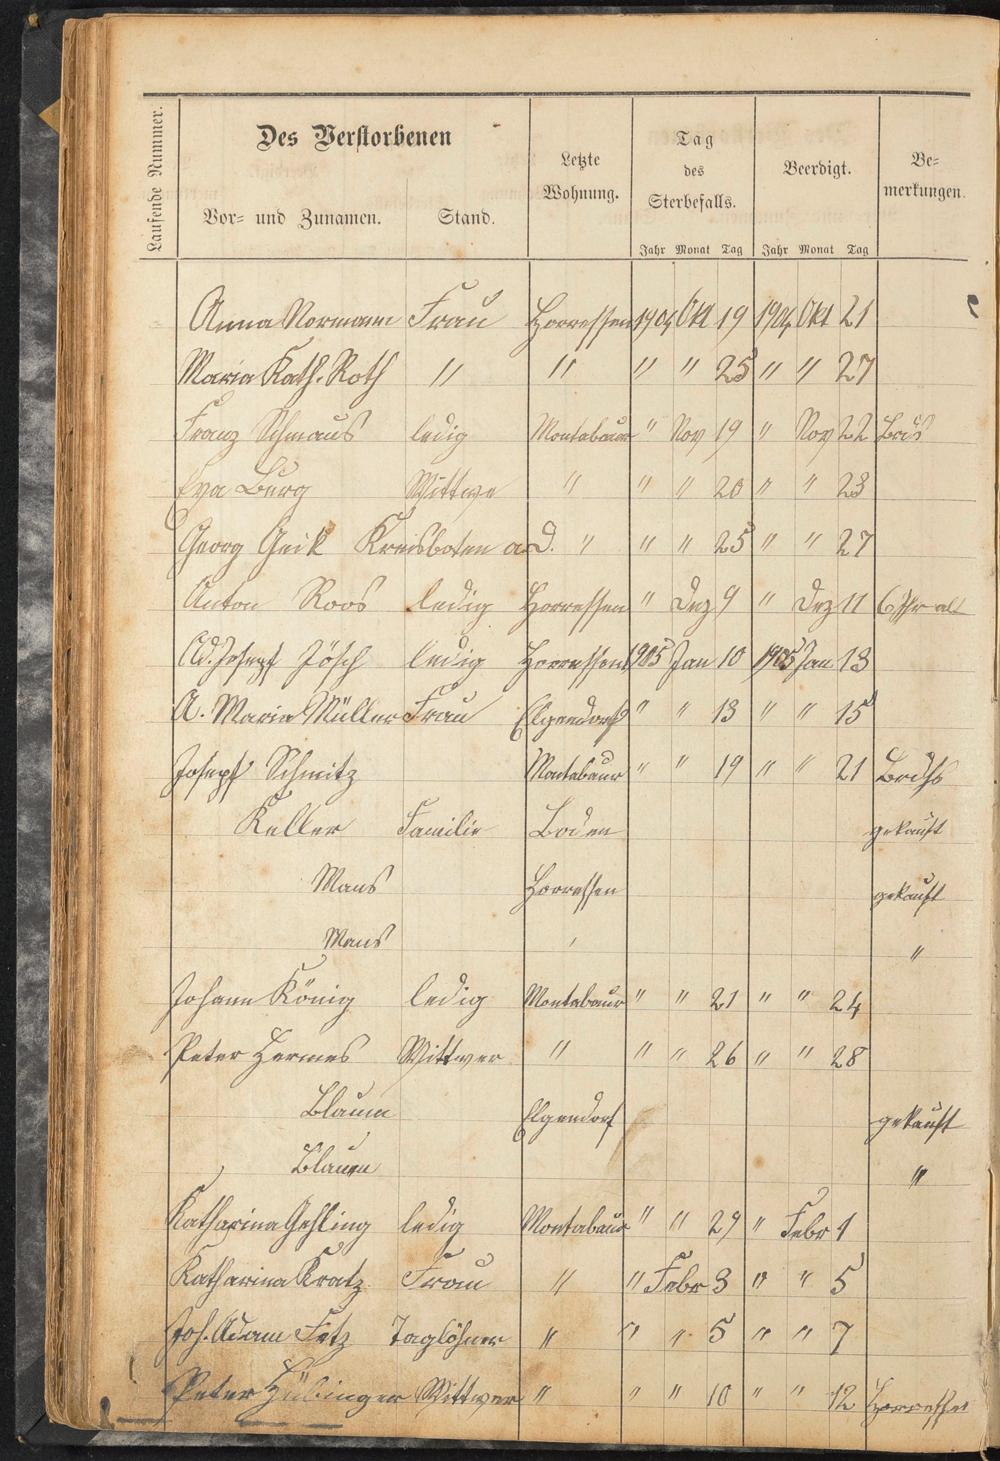 Laufende Nummer.
Des Verstorbenen
Vor- und Zunamen. Stand.
Letzte Wohnung.
Tag des Sterbefalls.
Beerdigt.
Be-
merkungen.
Jahr Monat Tag Jahr Monat Tag
Anna Normann Frau Horressen 1904 Okt 19 1904 Okt 21
Maria Kath. Roth " " " " 25 " " 27
Franz Schmaus ledig Montabaur " Nov 19 " Nov 22
Eva Burg Wittwe " " " 20 " " 23
Georg Geik Kreisboten a. D. " " " 25 " " 27
Anton Roos ledig Horressen " Dez 9 " Dez 11 6 Jhr alt
Ad. Josepf Jösch ledig Horressen 1905 Jan 10 1905 Jan 13
A. Maria Müller Frau Elgendorf " " 13 " " 15
Josepf Schmitz Montabaur " " 19 " " 21
Keller Familie Boden gekauft
Mans Horressen gekauft
Mans " "
Johann König ledig Montabaur " " 21 " " 24
Peter Hermes Wittwer " " " 26 " " 28
Blaum Elgendorf gekauft
Blaum "
Katharina Gehling ledig Montabaur " " 29 " Febr 1
Katharina Kratz Frau " " Febr 3 " " 5
Joh. Adam Fetz Taglöhner " " " 5 " " 7
Peter Hübinger Wittwer " " " 10 " " 12 Horressen